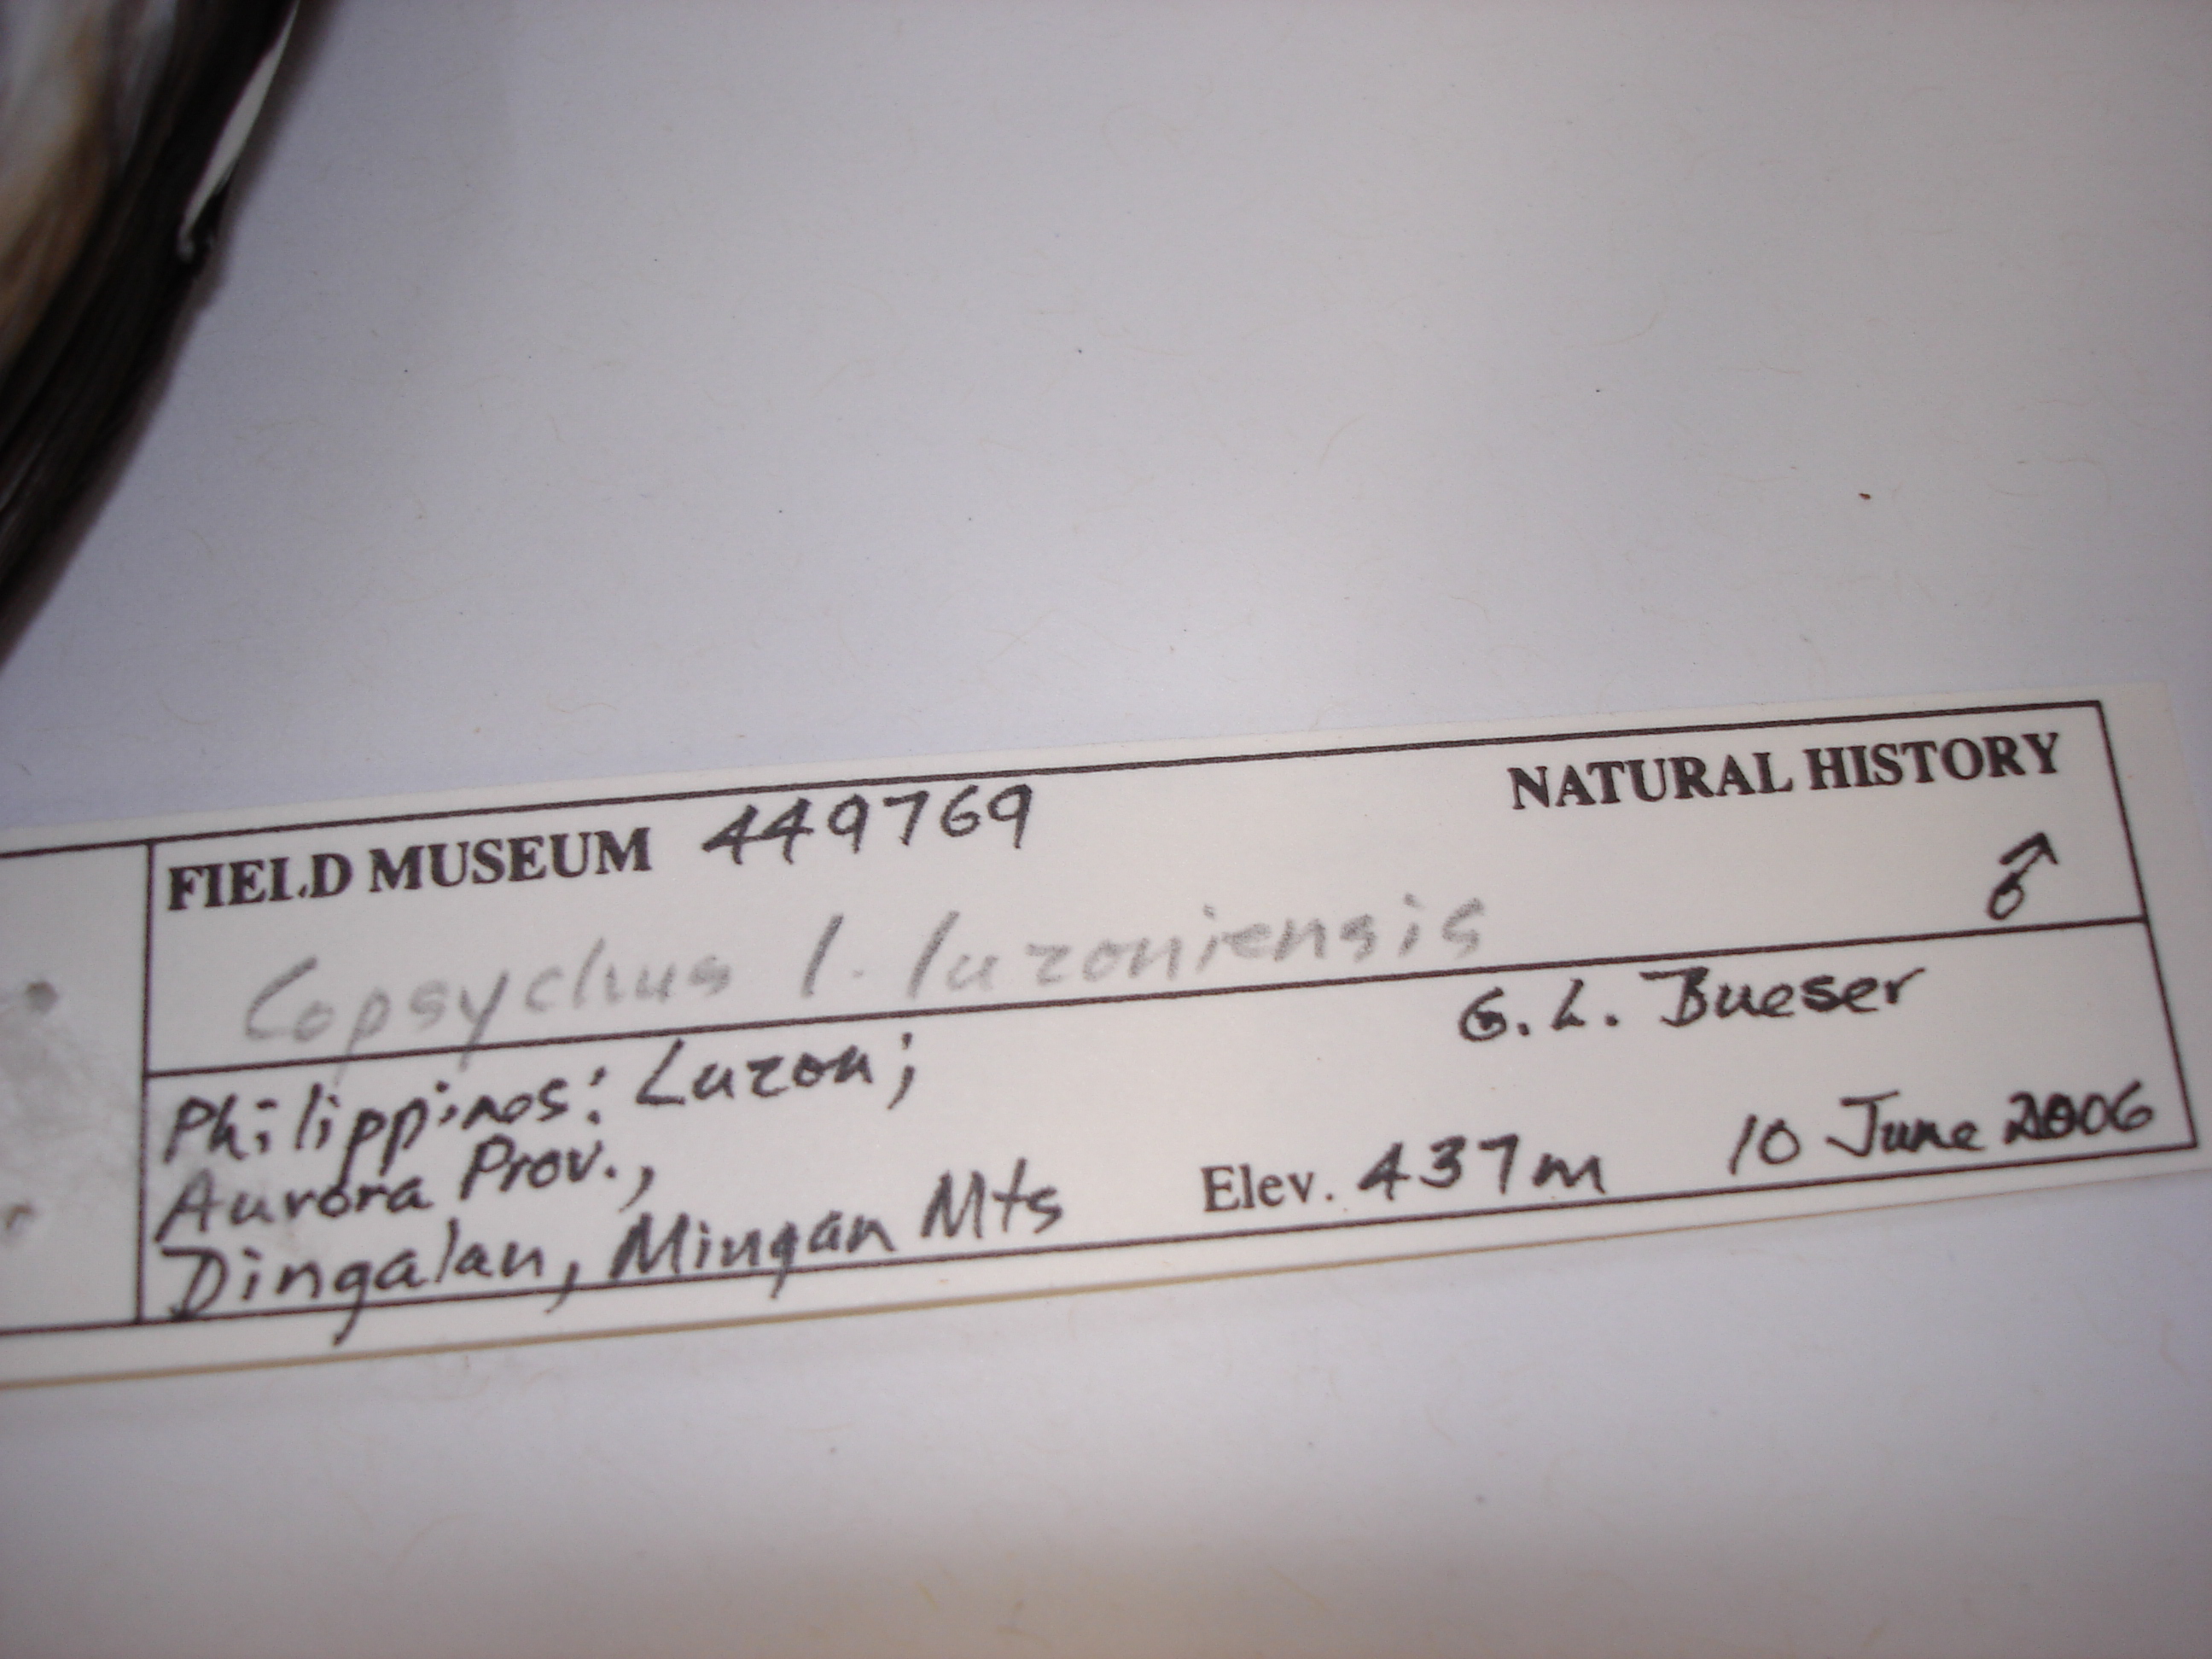 FIELD MUSEUM 449769 NATURAL HISTORY
Copsychus l. luzoniensis ♂
Philippines: Luzon; G. L. Bueser
Aurora Prov.,
Dingalan, Mingan Mts Elev. 437m 10 June 2006